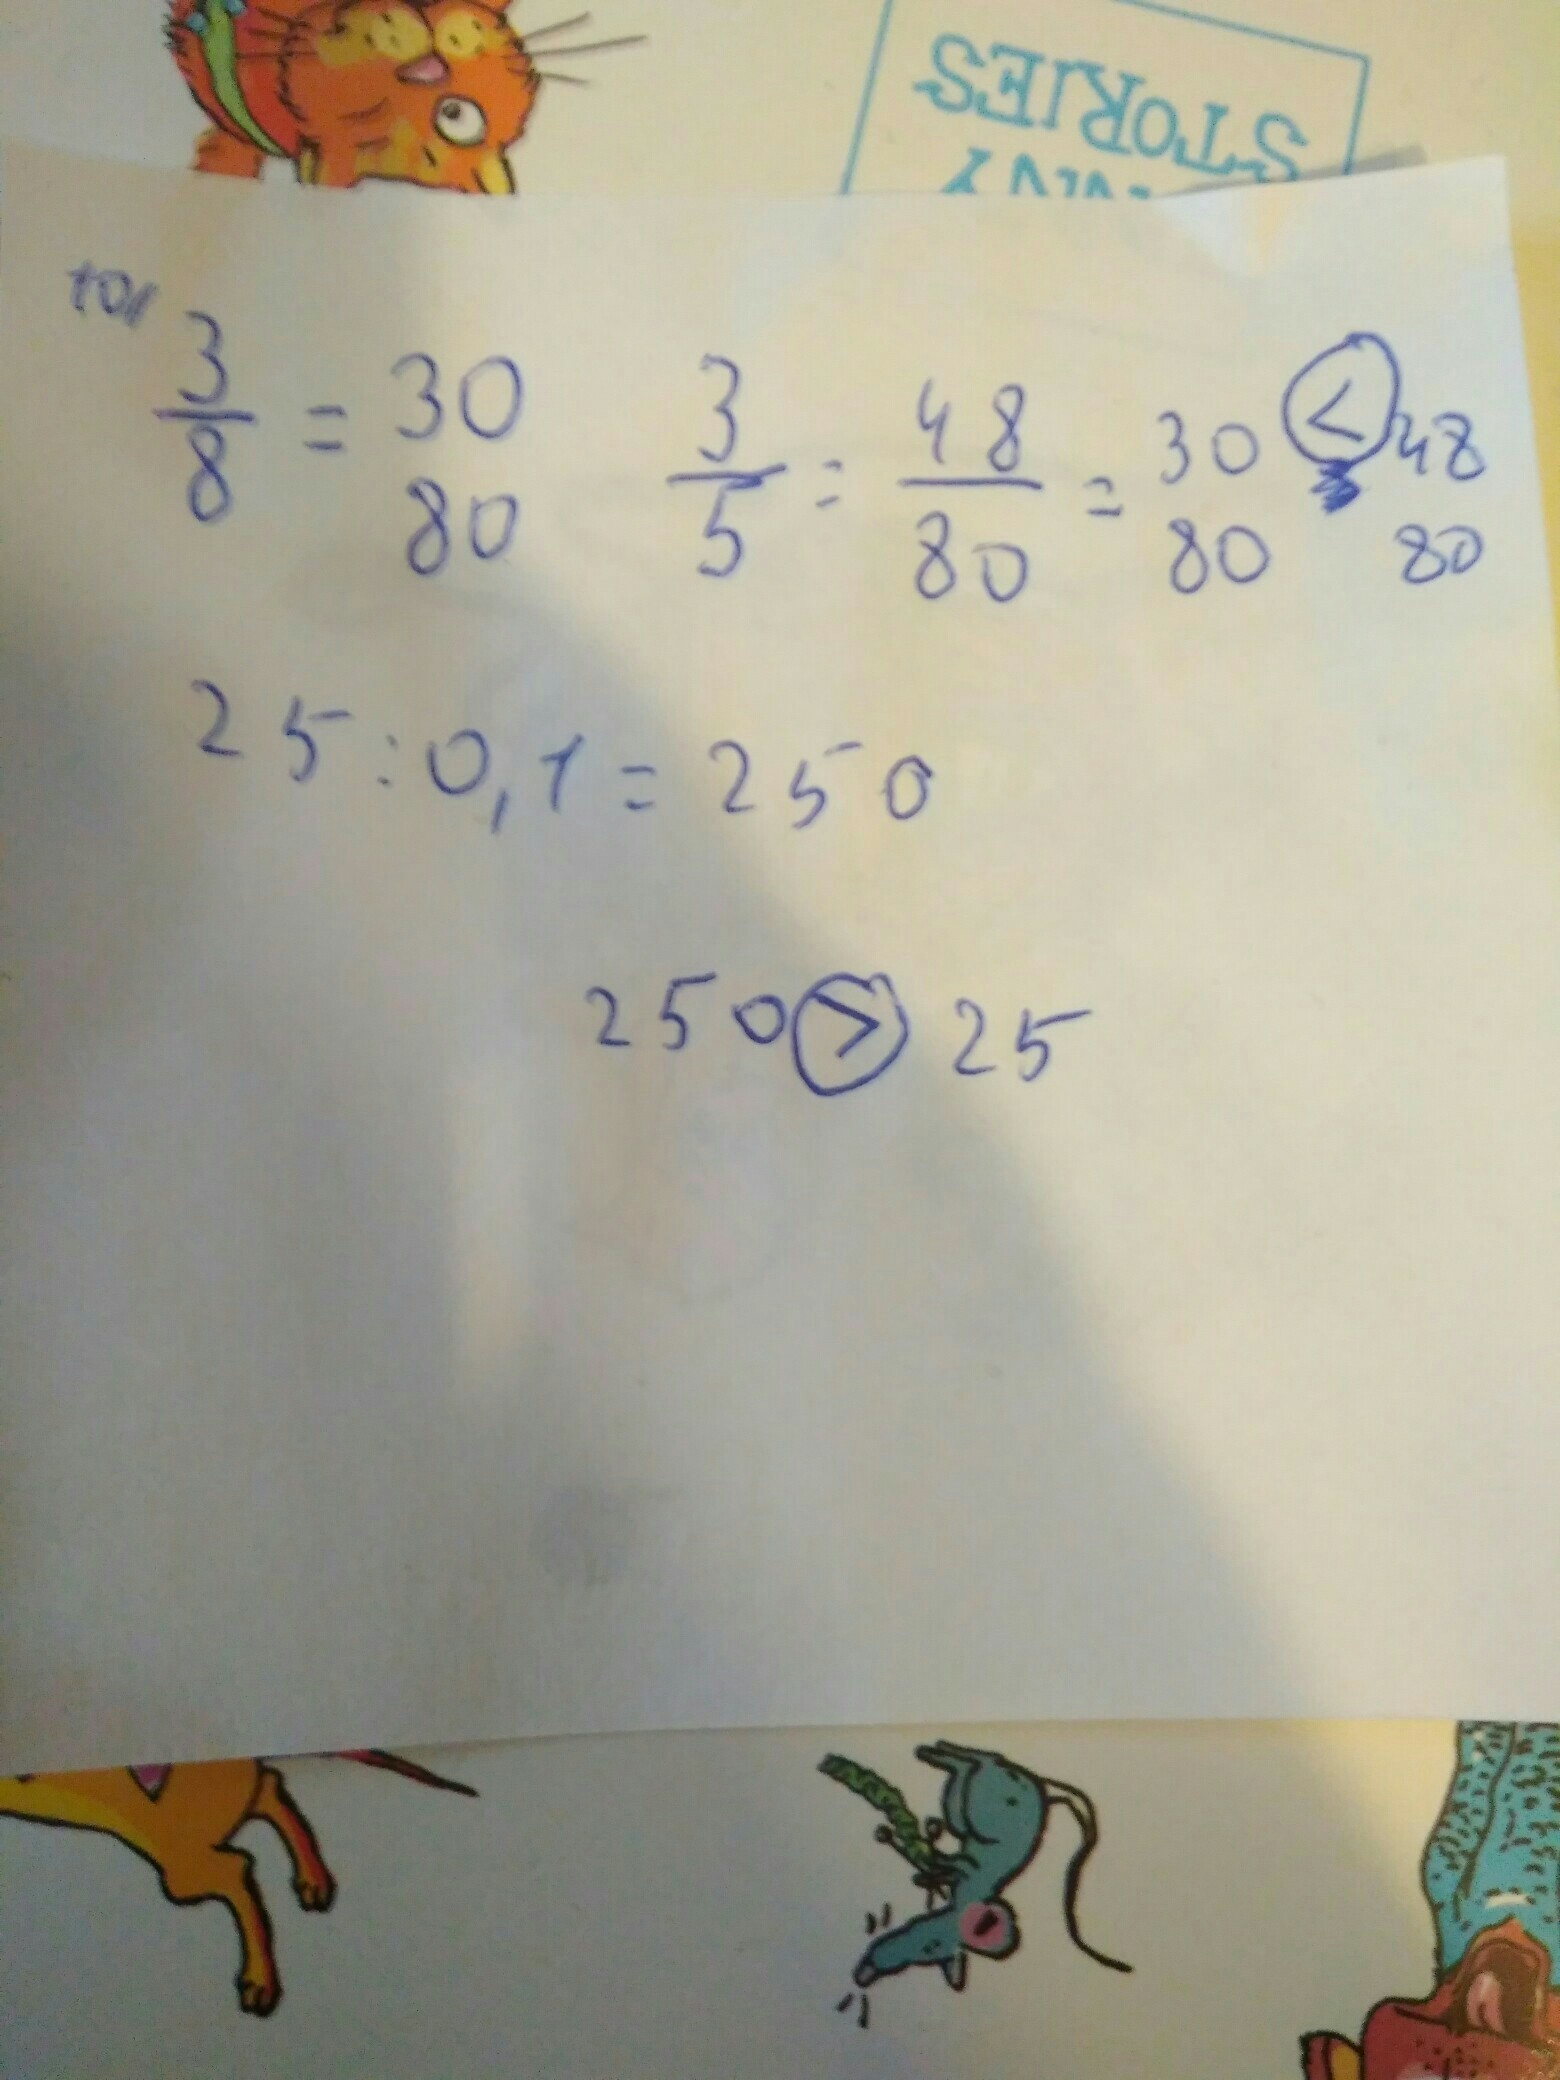 STORIES
3/8 = 30/80 3/5 = 48/80 = 30/80 < 48/80
25 : 0,1 = 250
250 > 25